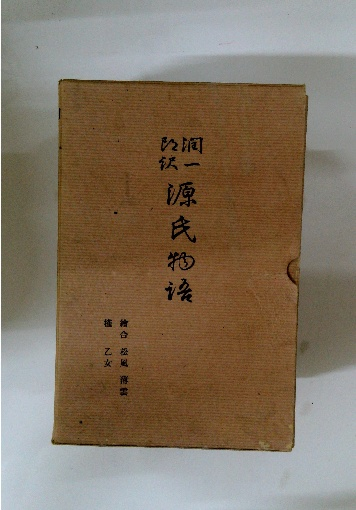 潤一
郎訳
源氏物語
繪合 松風 薄雲
槿 乙女